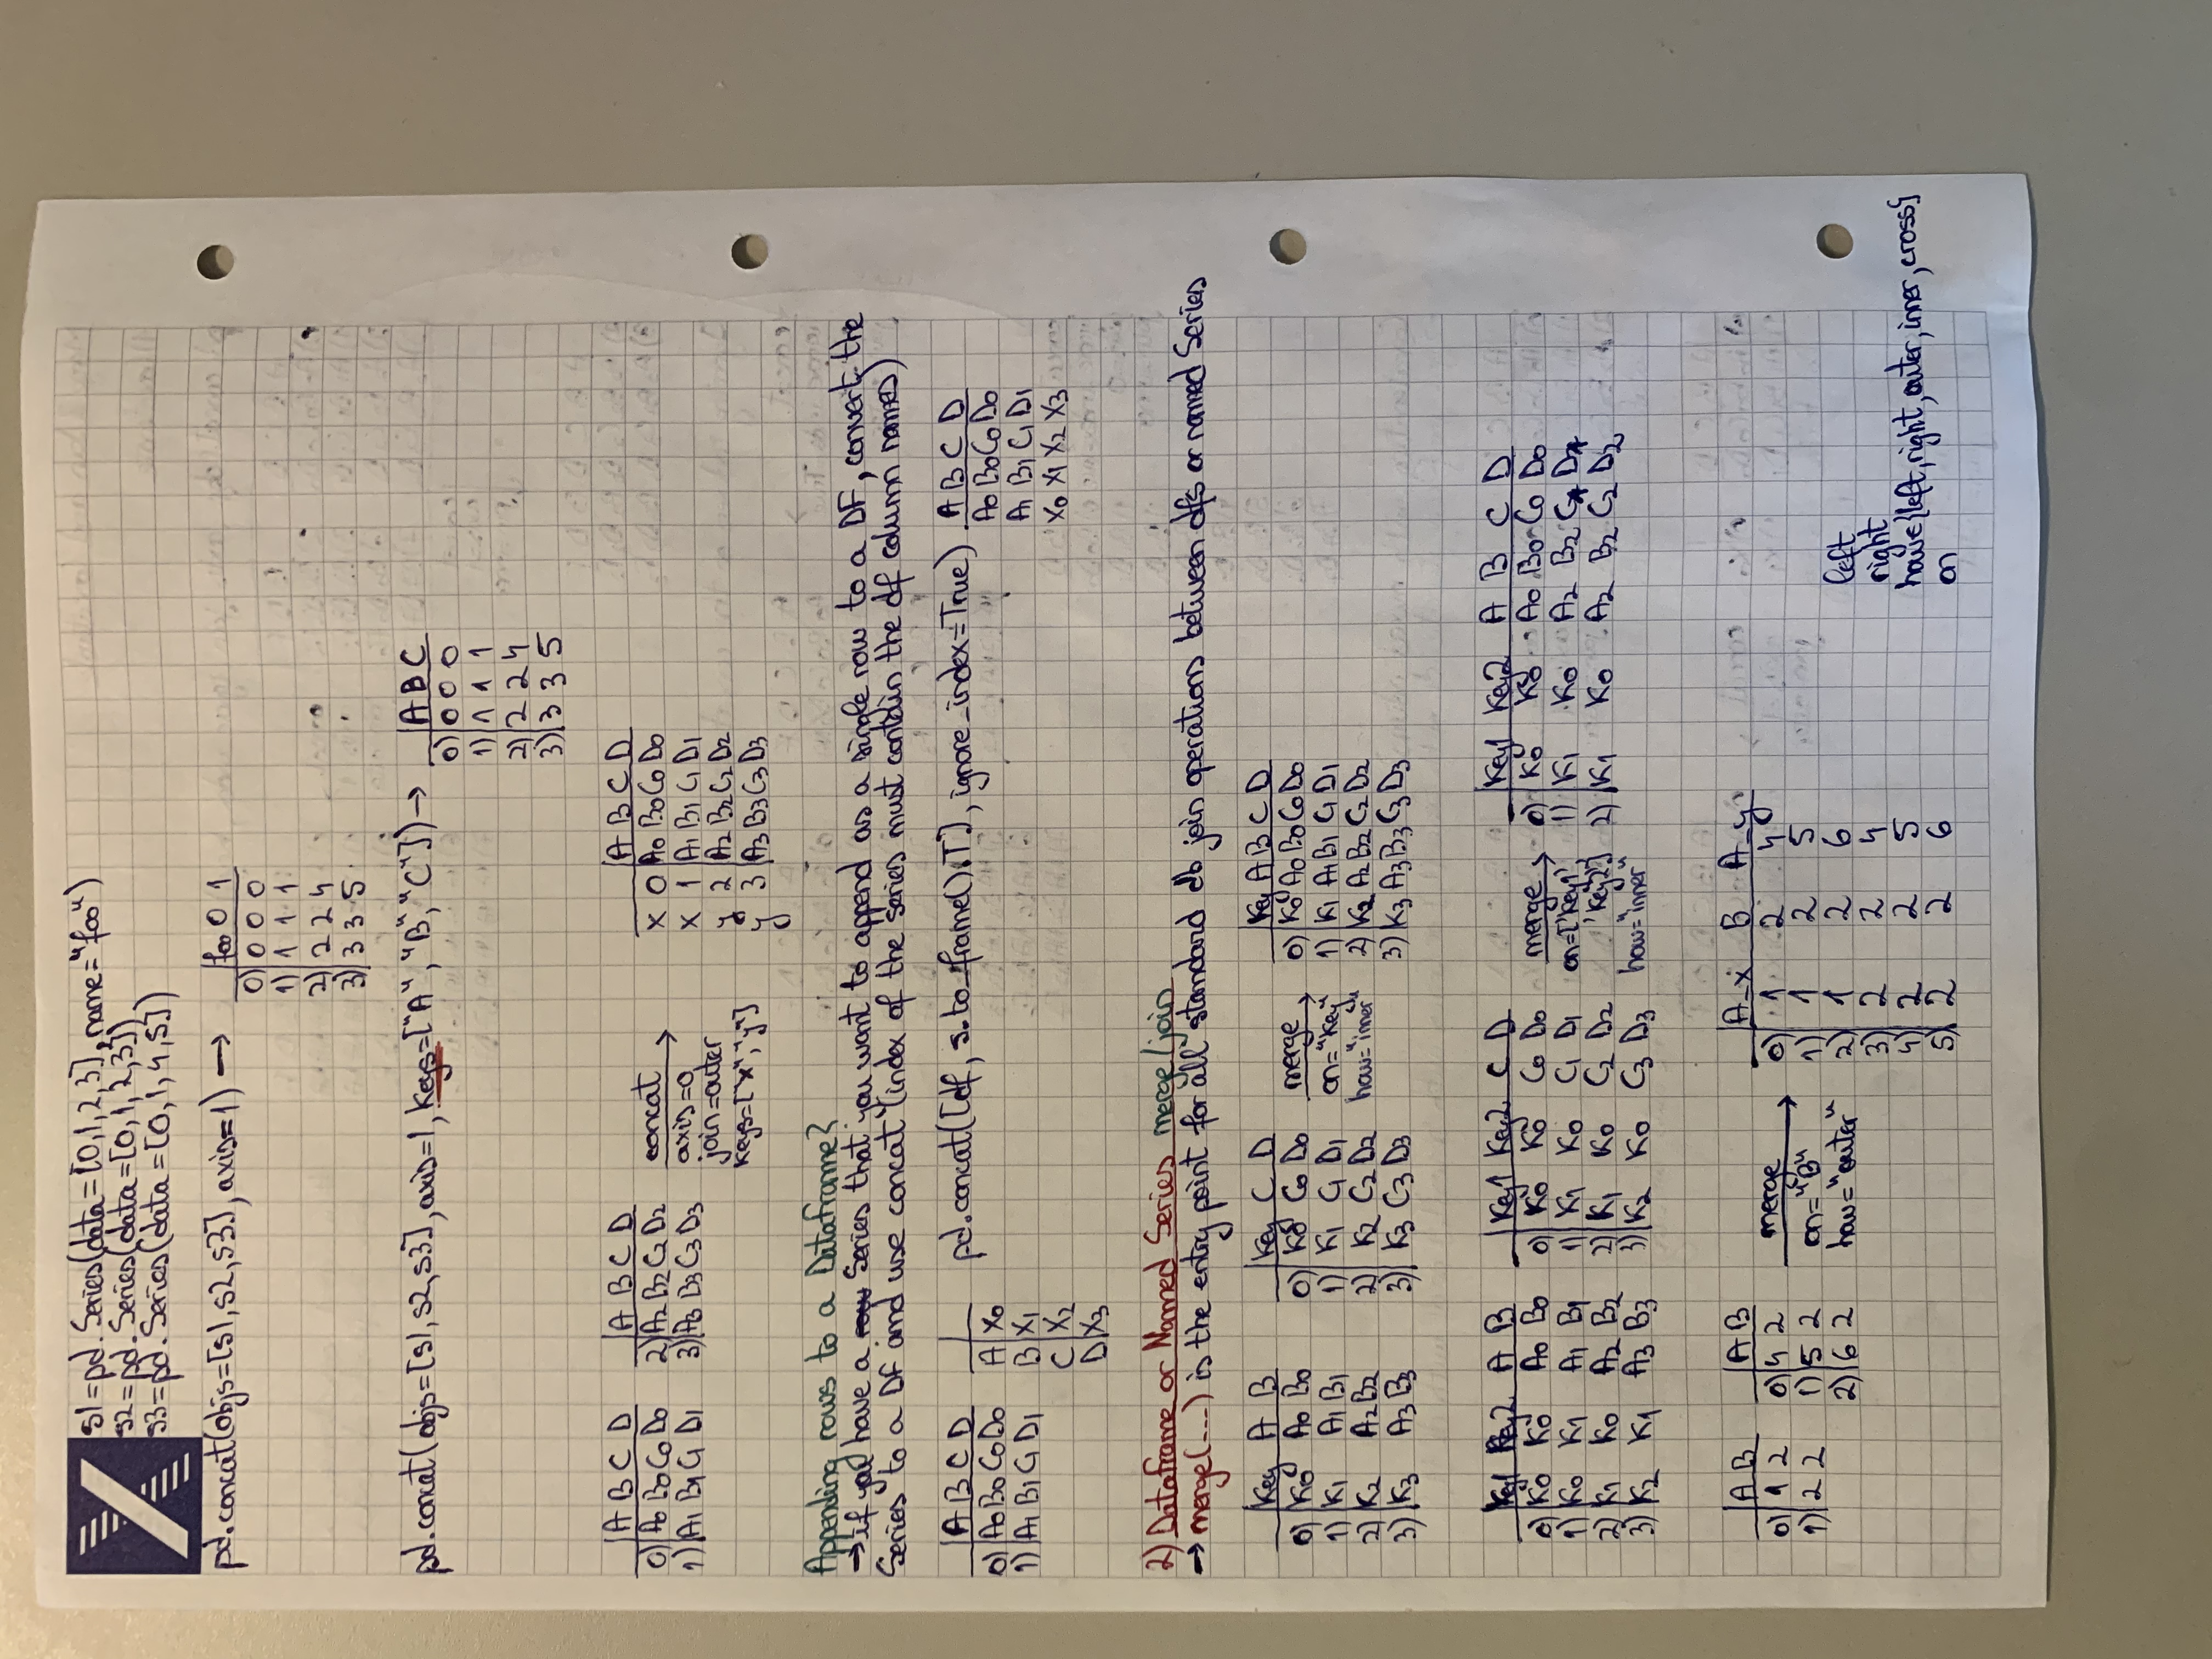 s1=pd.Series(data=[0,1,2,3],name="foo")
s2=pd.Series(data=[0,1,2,3])
s3=pd.Series(data=[0,1,4,5])
pd.concat(objs=[s1,s2,s3],axis=1) →
foo 0 1
0) 0 0 0
1) 1 1 1
2) 2 2 4
3) 3 3 5
pd.concat(objs=[s1,s2,s3],axis=1,keys=["A","B","C"]) →
A B C
0) 0 0 0
1) 1 1 1
2) 2 2 4
3) 3 3 5
A B C D
0) A0 B0 C0 D0
1) A1 B1 C1 D1
A B C D
2) A2 B2 C2 D2
3) A3 B3 C3 D3
concat
axis=0
join=outer
keys=["x","y"]
A B C D
x 0 A0 B0 C0 D0
x 1 A1 B1 C1 D1
y 2 A2 B2 C2 D2
y 3 A3 B3 C3 D3
Appending rows to a Dataframe?
→ if you have a Series that you want to append as a single row to a DF, convert the
Series to a DF and use concat (index of the series must contain the df column names)
A B C D
0) A0 B0 C0 D0
1) A1 B1 C1 D1
A X0
B X1
C X2
D X3
pd.concat([df, s.to_frame().T], ignore_index=True)
A B C D
A0 B0 C0 D0
A1 B1 C1 D1
X0 X1 X2 X3
2) Dataframe or Named Series merge/join
→ merge(....) is the entry point for all standard db join operations between dfs or named Series
Key A B
0) K0 A0 B0
1) K1 A1 B1
2) K2 A2 B2
3) K3 A3 B3
Key C D
0) K0 C0 D0
1) K1 C1 D1
2) K2 C2 D2
3) K3 C3 D3
merge
on="Key"
how="inner"
Key A B C D
0) K0 A0 B0 C0 D0
1) K1 A1 B1 C1 D1
2) K2 A2 B2 C2 D2
3) K3 A3 B3 C3 D3
Key1 Key2 A B
0) K0 K0 A0 B0
1) K0 K1 A1 B1
2) K1 K0 A2 B2
3) K2 K1 A3 B3
Key1 Key2 C D
0) K0 K0 C0 D0
1) K1 K0 C1 D1
2) K1 K0 C2 D2
3) K2 K0 C3 D3
merge
on=['Key1',
'Key2']
how="inner"
Key1 Key2 A B C D
0) K0 K0 A0 B0 C0 D0
1) K1 K0 A2 B2 C1 D1
2) K1 K0 A2 B2 C2 D2
A B
0) 1 2
1) 2 2
A B
0) 4 2
1) 5 2
2) 6 2
merge
on="B"
how="outer"
A_x B A_y
0) 1 2 4
1) 1 2 5
2) 1 2 6
3) 2 2 4
4) 2 2 5
5) 2 2 6
left
right
how∈{left,right,outer,inner,cross}
on